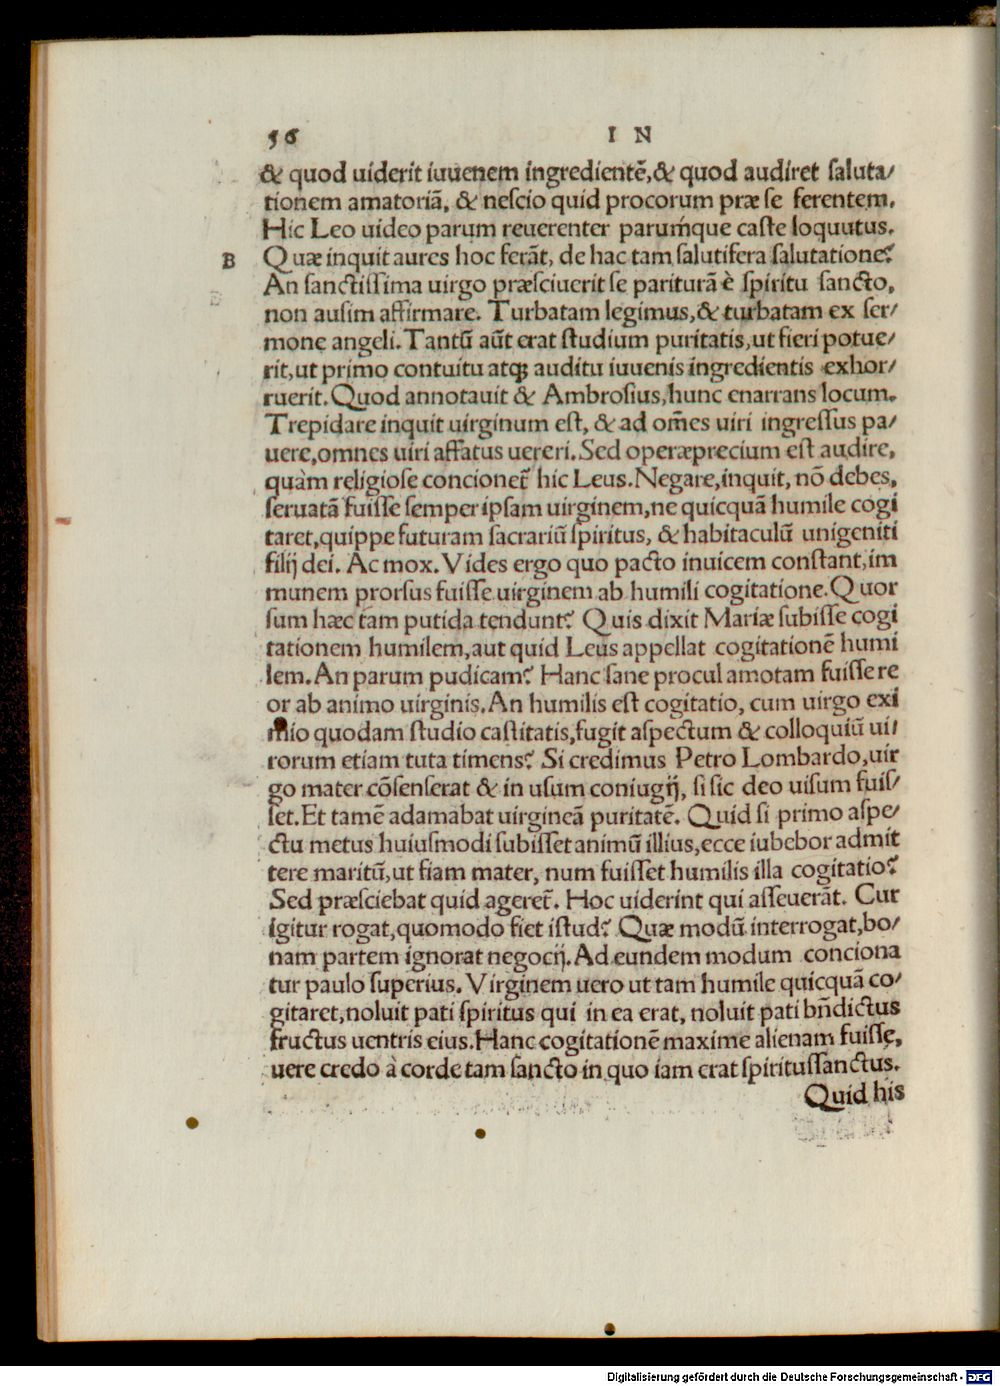 56 IN
& quod uiderit iuuenem ingredientē,& quod audiret saluta/
tionem amatoriā, & nescio quid procorum præ se ferentem.
Hic Leo uideo parum reuerenter paruḿque caste loquutus.
B Quæ inquit aures hoc ferāt, de hac tam salutifera salutatione?
An sanctissima uirgo præsciuerit se pariturā è spiritu sancto,
non ausim affirmare. Turbatam legimus,& turbatam ex ser/
mone angeli. Tantū aūt erat studium puritatis,ut fieri potue/
rit,ut primo contuitu atqꝫ auditu iuuenis ingredientis exhor/
ruerit. Quod annotauit & Ambrosius,hunc enarrans locum.
Trepidare inquit uirginum est, & ad om̄es uiri ingressus pa/
uere,omnes uiri affatus uereri. Sed operæprecium est audire,
quàm religiose concionet̄ hic Leus. Negare,inquit, nō debes,
seruatā fuisse semper ipsam uirginem,ne quicquā humile cogi
taret,quippe futuram sacrariū spiritus, & habitaculū unigeniti
filij dei. Ac mox. Vides ergo quo pacto inuicem constant,im
munem prorsus fuisse uirginem ab humili cogitatione. Quor
sum hæc tam putida tendunt? Quis dixit Mariæ subisse cogi
tationem humilem,aut quid Leus appellat cogitationē humi
lem. An parum pudicam? Hanc sane procul amotam fuisse re
or ab animo uirginis. An humilis est cogitatio, cum uirgo exi
mio quodam studio castitatis,fugit aspectum & colloquiū ui/
rorum etiam tuta timens? Si credimus Petro Lombardo,uir
go mater cōsenserat & in usum coniugij, si sic deo uisum fuis/
set. Et tamē adamabat uirgineā puritatē. Quid si primo aspe/
ctu metus huiusmodi subisset animū illius,ecce iubebor admit
tere maritū,ut fiam mater, num fuisset humilis illa cogitatio?
Sed præsciebat quid ageret̄. Hoc uiderint qui asseuerāt. Cur
igitur rogat,quomodo fiet istud? Quæ modū interrogat,bo/
nam partem ignorat negocij. Ad eundem modum conciona
tur paulo superius. Virginem uero ut tam humile quicquā co/
gitaret,noluit pati spiritus qui in ea erat, noluit pati bn̄dictus
fructus uentris eius. Hanc cogitationē maxime alienam fuisse,
uere credo à corde tam sancto in quo iam erat spiritussanctus.
Quid his
Digitalisierung gefördert durch die Deutsche Forschungsgemeinschaft - DFG